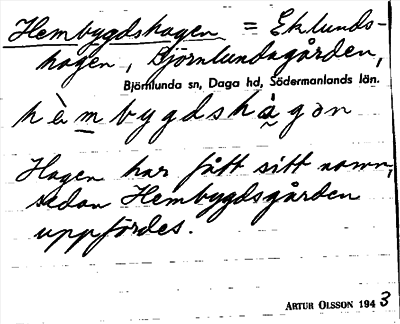 Hembygdshagen = Eklunds-
hagen, Björnlundagården,
Björnlunda sn, Daga hd, Södermanlands län.
hèmbygdshàgən
Hagen har fått sitt namn,
sedan Hembygdsgården
uppfördes.
ARTUR OLSSON 1943